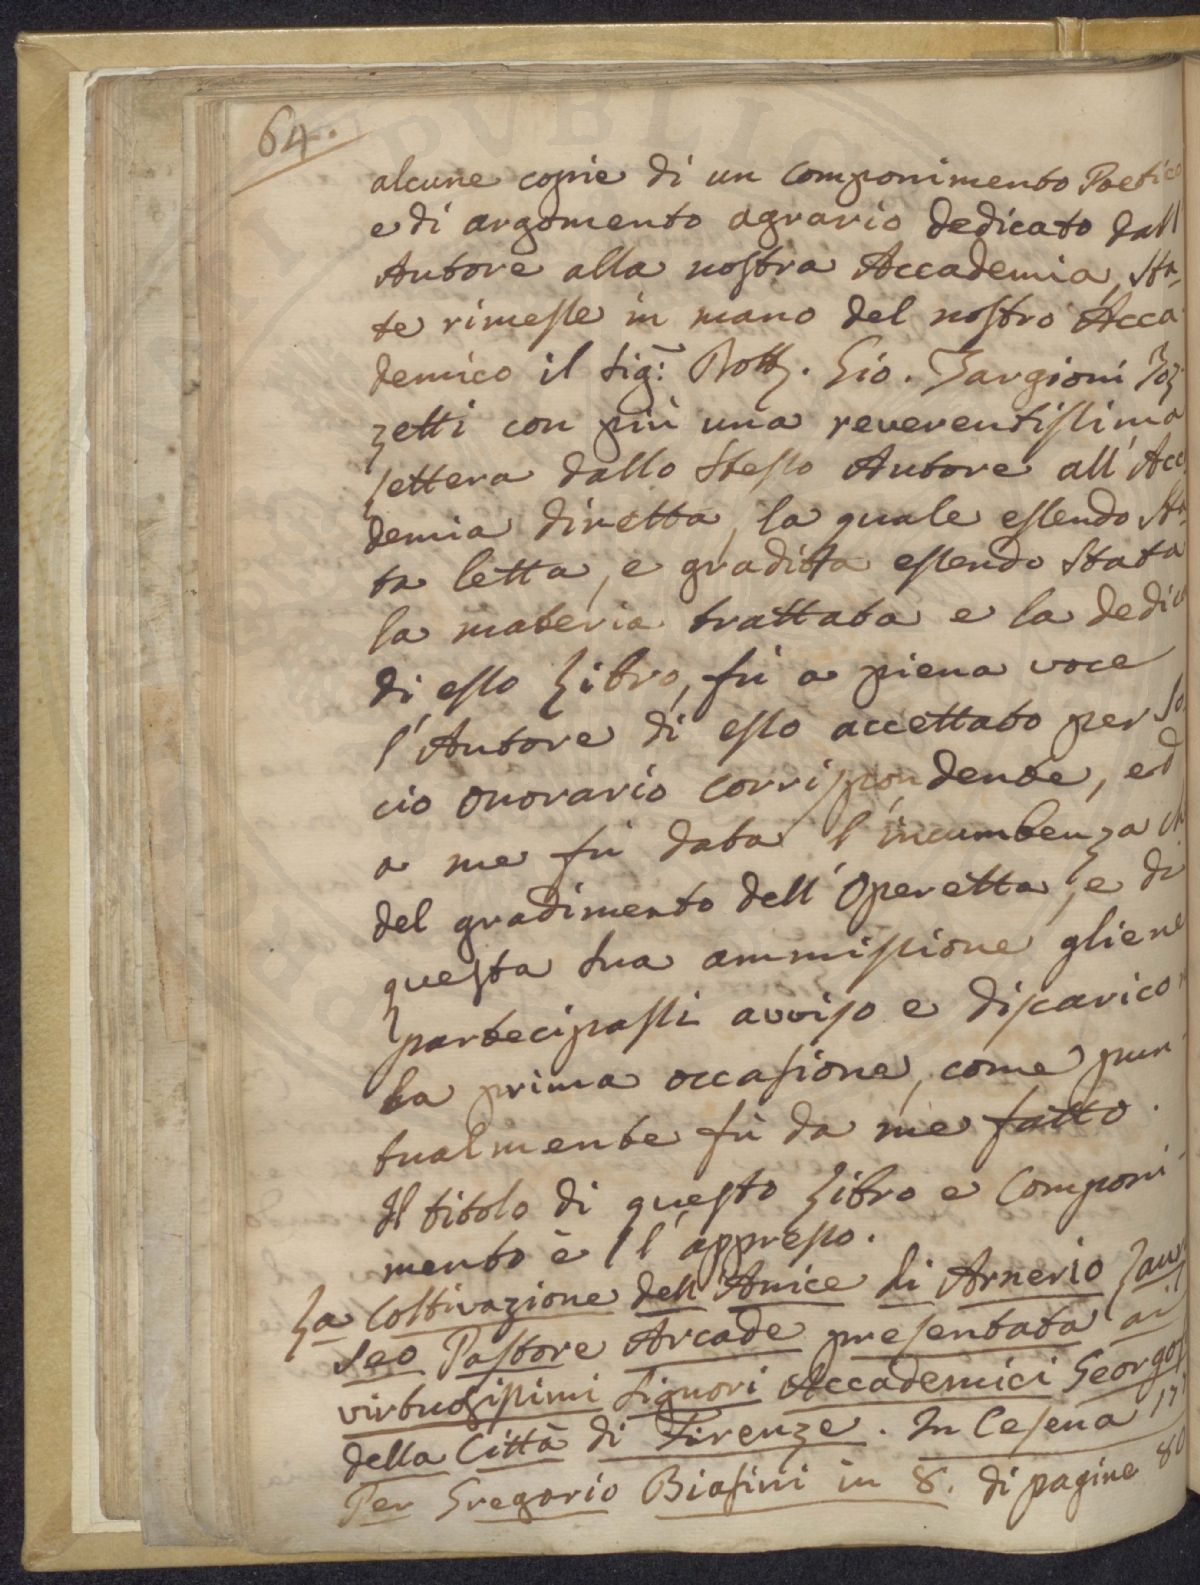 64.
alcune copie di un Componimento Poetico
e di argomento agrario dedicato dall
Autore alla nostra Accademia, sta-
te rimesse in mano del nostro Acca
demico il Sig:r Dott. Gio. Targioni Toz
zetti con più una reverentissima
lettera dallo stesso Autore all' Acca
demia diretta, la quale essendo sta-
ta letta, e gradita essendo stata
la materia trattata e la dedica
di esso Libro, fù a piena voce
l'Autore di esso accettato per So
cio onorario corrispondente, ed
a me fù data l'incumbenza ch
del gradimento dell'Operetta, e di
questa sua ammissione gliene
partecipassi avviso e discarico
la prima occasione, come pun
tualmente fù da me fatto.
Il titolo di questo Libro e Componi
mento è l'appresso.
La Coltivazione dell'Anice di Arnerio Lau
seo Pastore Arcade presentata ai
virtuosissimi Signori Accademici Georgof
della Città di Firenze. In Cesena 17
Per Gregorio Biasini in 8. di pagine 80